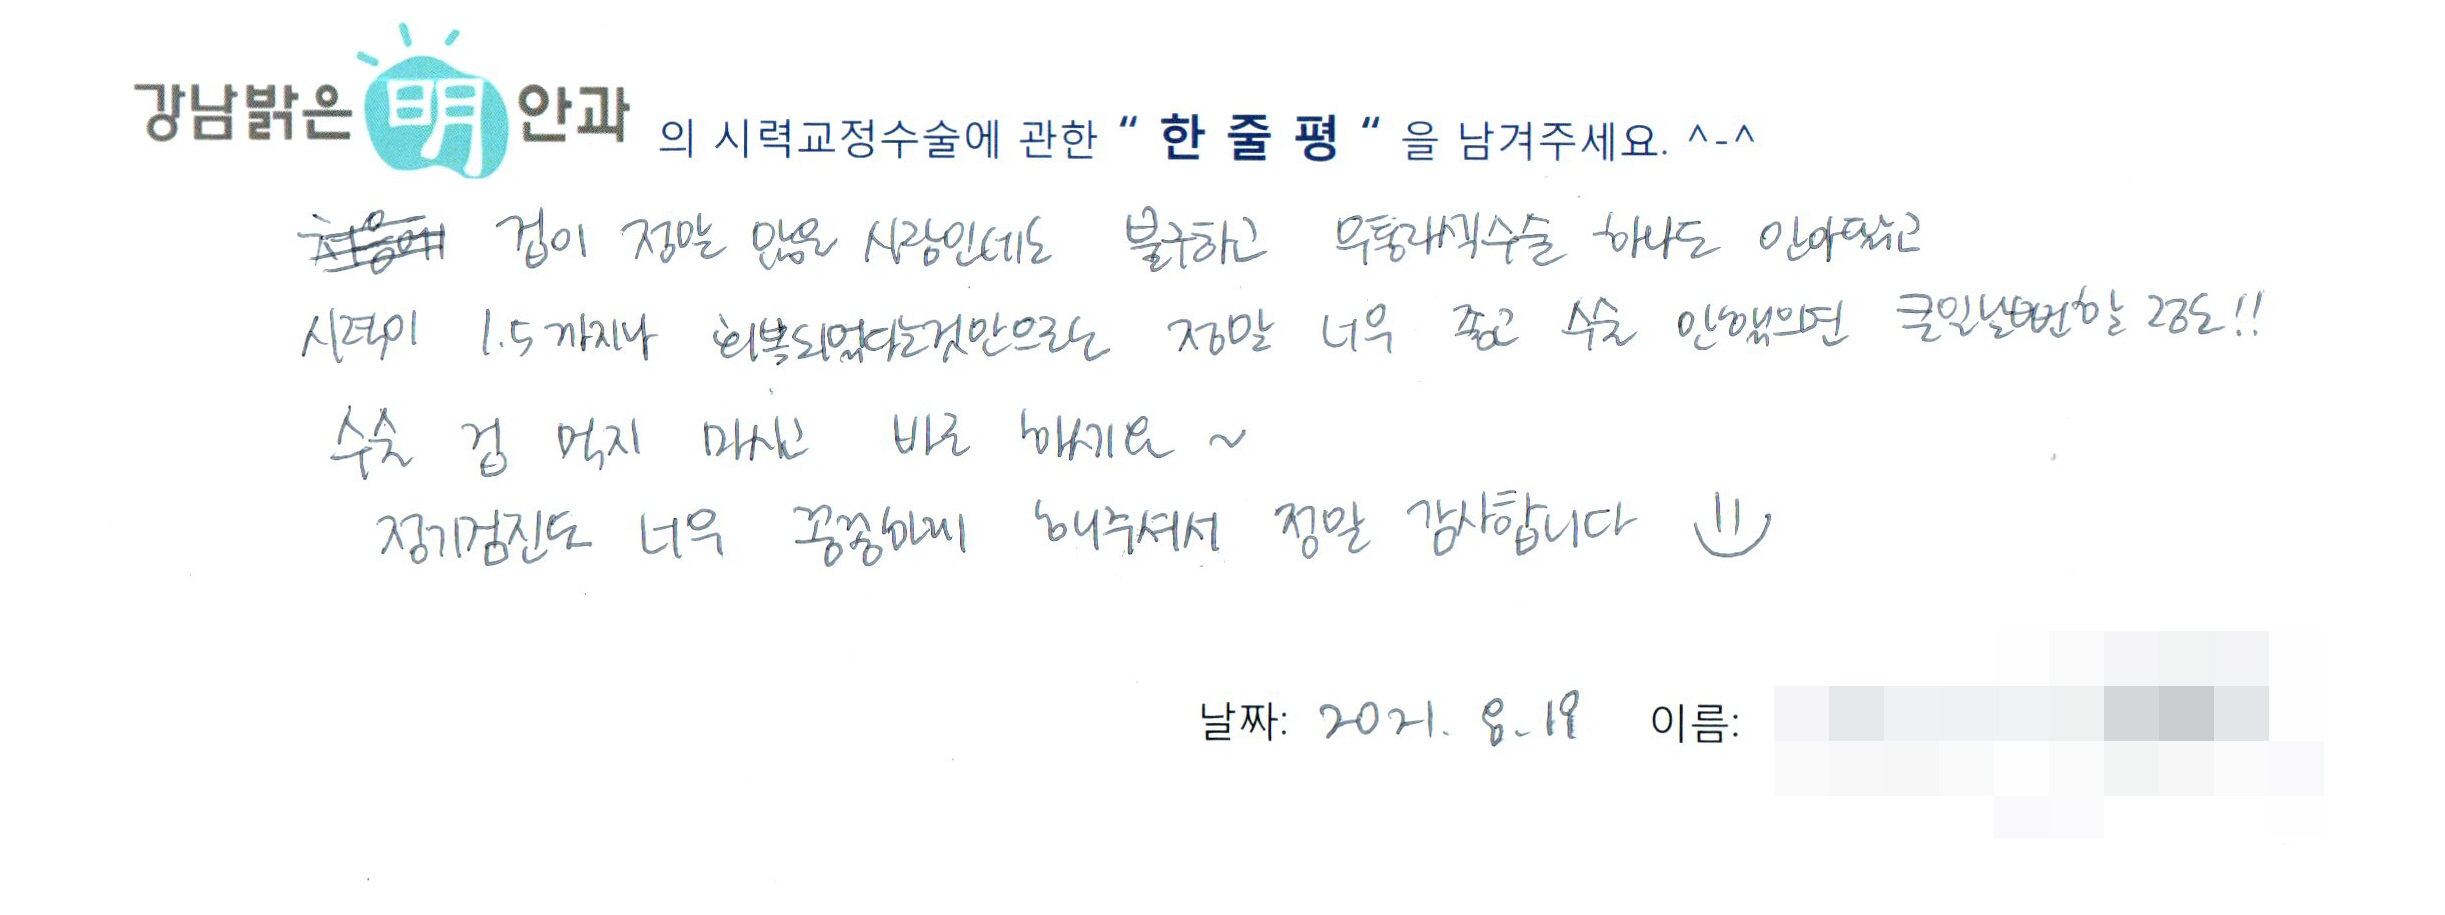 강남밝은明안과 의 시력교정수술에 관한 “ 한 줄 평 “ 을 남겨주세요. ^-^
겁이 정말 많은 사람인데도 불구하고 무통라섹수술 하나도 안아팠고
시력이 1.5까지나 회복되었다는것만으로는 정말 너무 좋고 수술 안했으면 큰일날뻔할 정도!!
수술 겁 먹지 마시고 바로 하세요 ~
정기검진도 너무 꼼꼼하게 해주셔서 정말 감사합니다
날짜: 2021. 8. 19 이름: